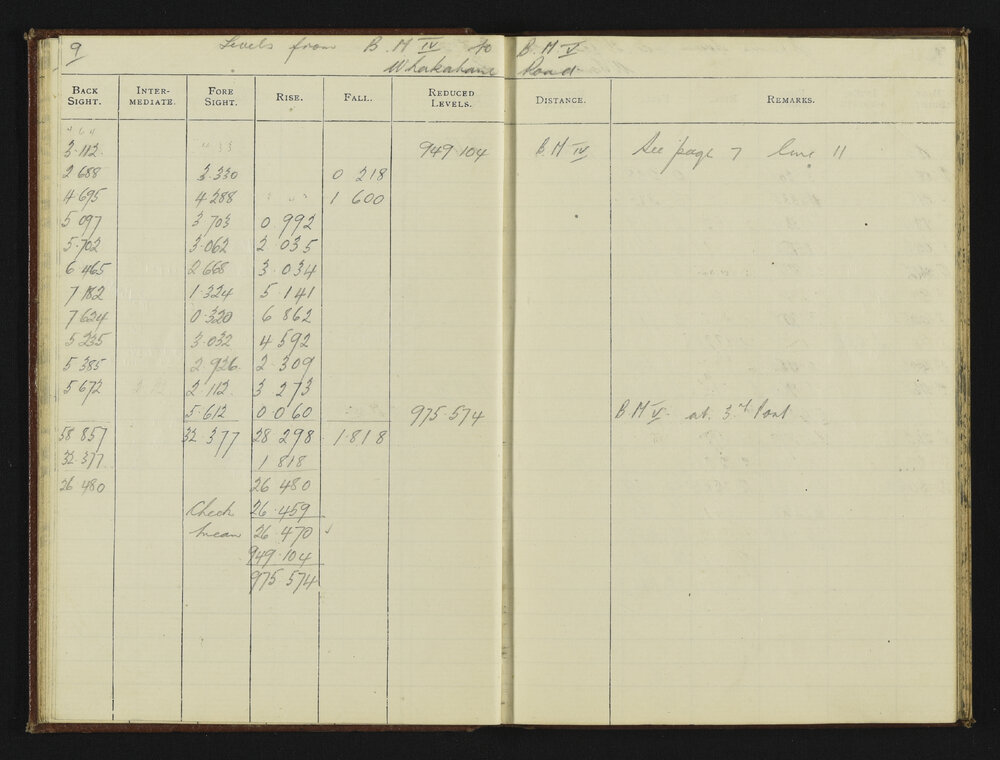 9 Levels from B.M IV to B.M V
Whakahane Road
BACK SIGHT. INTER-MEDIATE. FORE SIGHT. RISE. FALL. REDUCED LEVELS. DISTANCE. REMARKS.
3.112 949.104 B.M IV See page 7 line 11
2 688 3.330 0 218
4 695 4 288 1 600
5 097 3.703 0 992
5.702 3.062 2 035
6 465 2 668 3.034
7 182 1.324 5 141
7 624 0.320 6 862
5 235 3.032 4 592
5 385 2 926 2.309
5 672 2 112 3 273
5.612 0 060 975.574 B M V at 3rd Post
58 857 32.377 28 298 1.818
32.377 1 818
26 480 26 480
Check 26.459
Mean 26.470
949.104
975 574